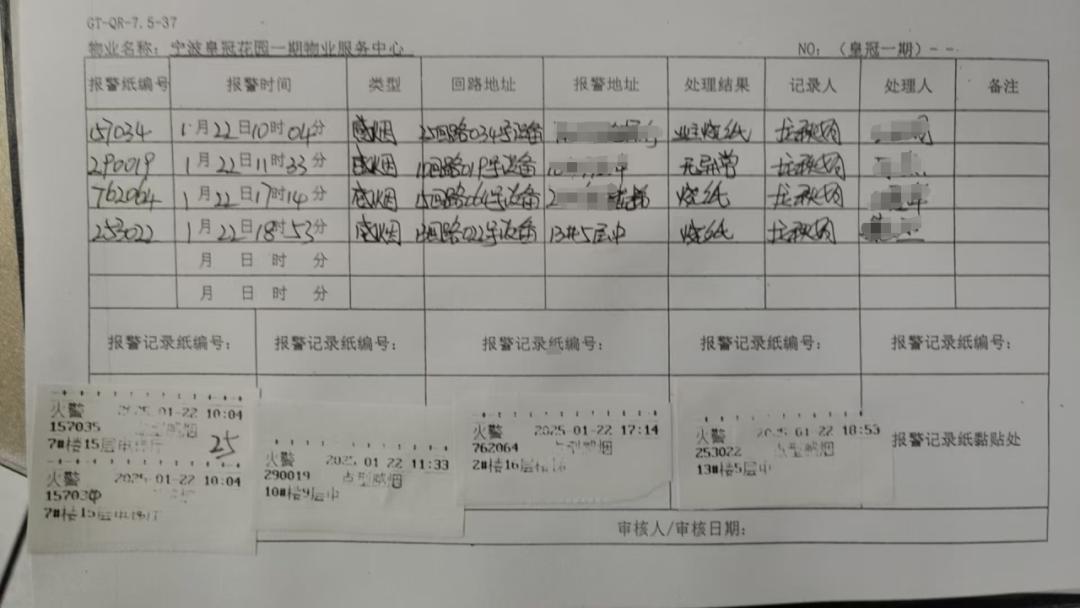 GT-QR-7.5-37
物业名称：宁波皇冠花园一期物业服务中心 NO：（皇冠一期）--
报警纸编号 报警时间 类型 回路地址 报警地址 处理结果 记录人 处理人 备注
157034 1月22日10时04分 感烟 25回路034号设备 业主烧纸
290019 1月22日11时33分 感烟 10回路019号设备 无异常
762064 1月22日17时14分 感烟 15回路064号设备 2 烧纸
253022 1月22日18时53分 感烟 回路022号设备 13#5层中 烧纸
月 日 时 分
月 日 时 分
报警记录纸编号： 报警记录纸编号： 报警记录纸编号： 报警记录纸编号： 报警记录纸编号：
火警 2025-01-22 10:04
157035 点型感烟
7#楼15层电梯厅
25
火警 2025-01-22 10:04
15703
7#楼15层电梯厅
火警 2025-01-22 11:33
290019 点型感烟
10#楼9层中
火警 2025-01-22 17:14
762064 点型感烟
2#楼16层
火警 2025-01-22 18:53
253022 点型感烟
13#楼5层中
报警记录纸黏贴处
审核人/审核日期：